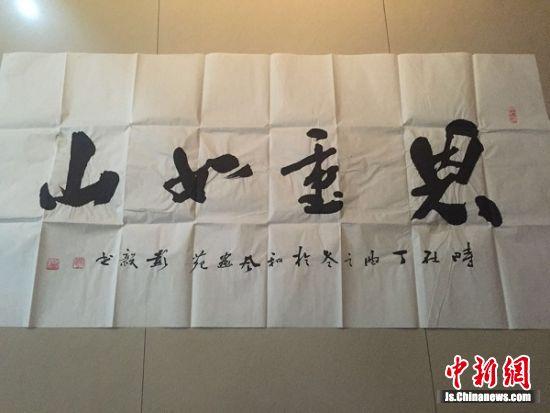 恩重如山
時在丁酉之冬於和畫苑 彭毅书
中新網
Js.Chinanews.com